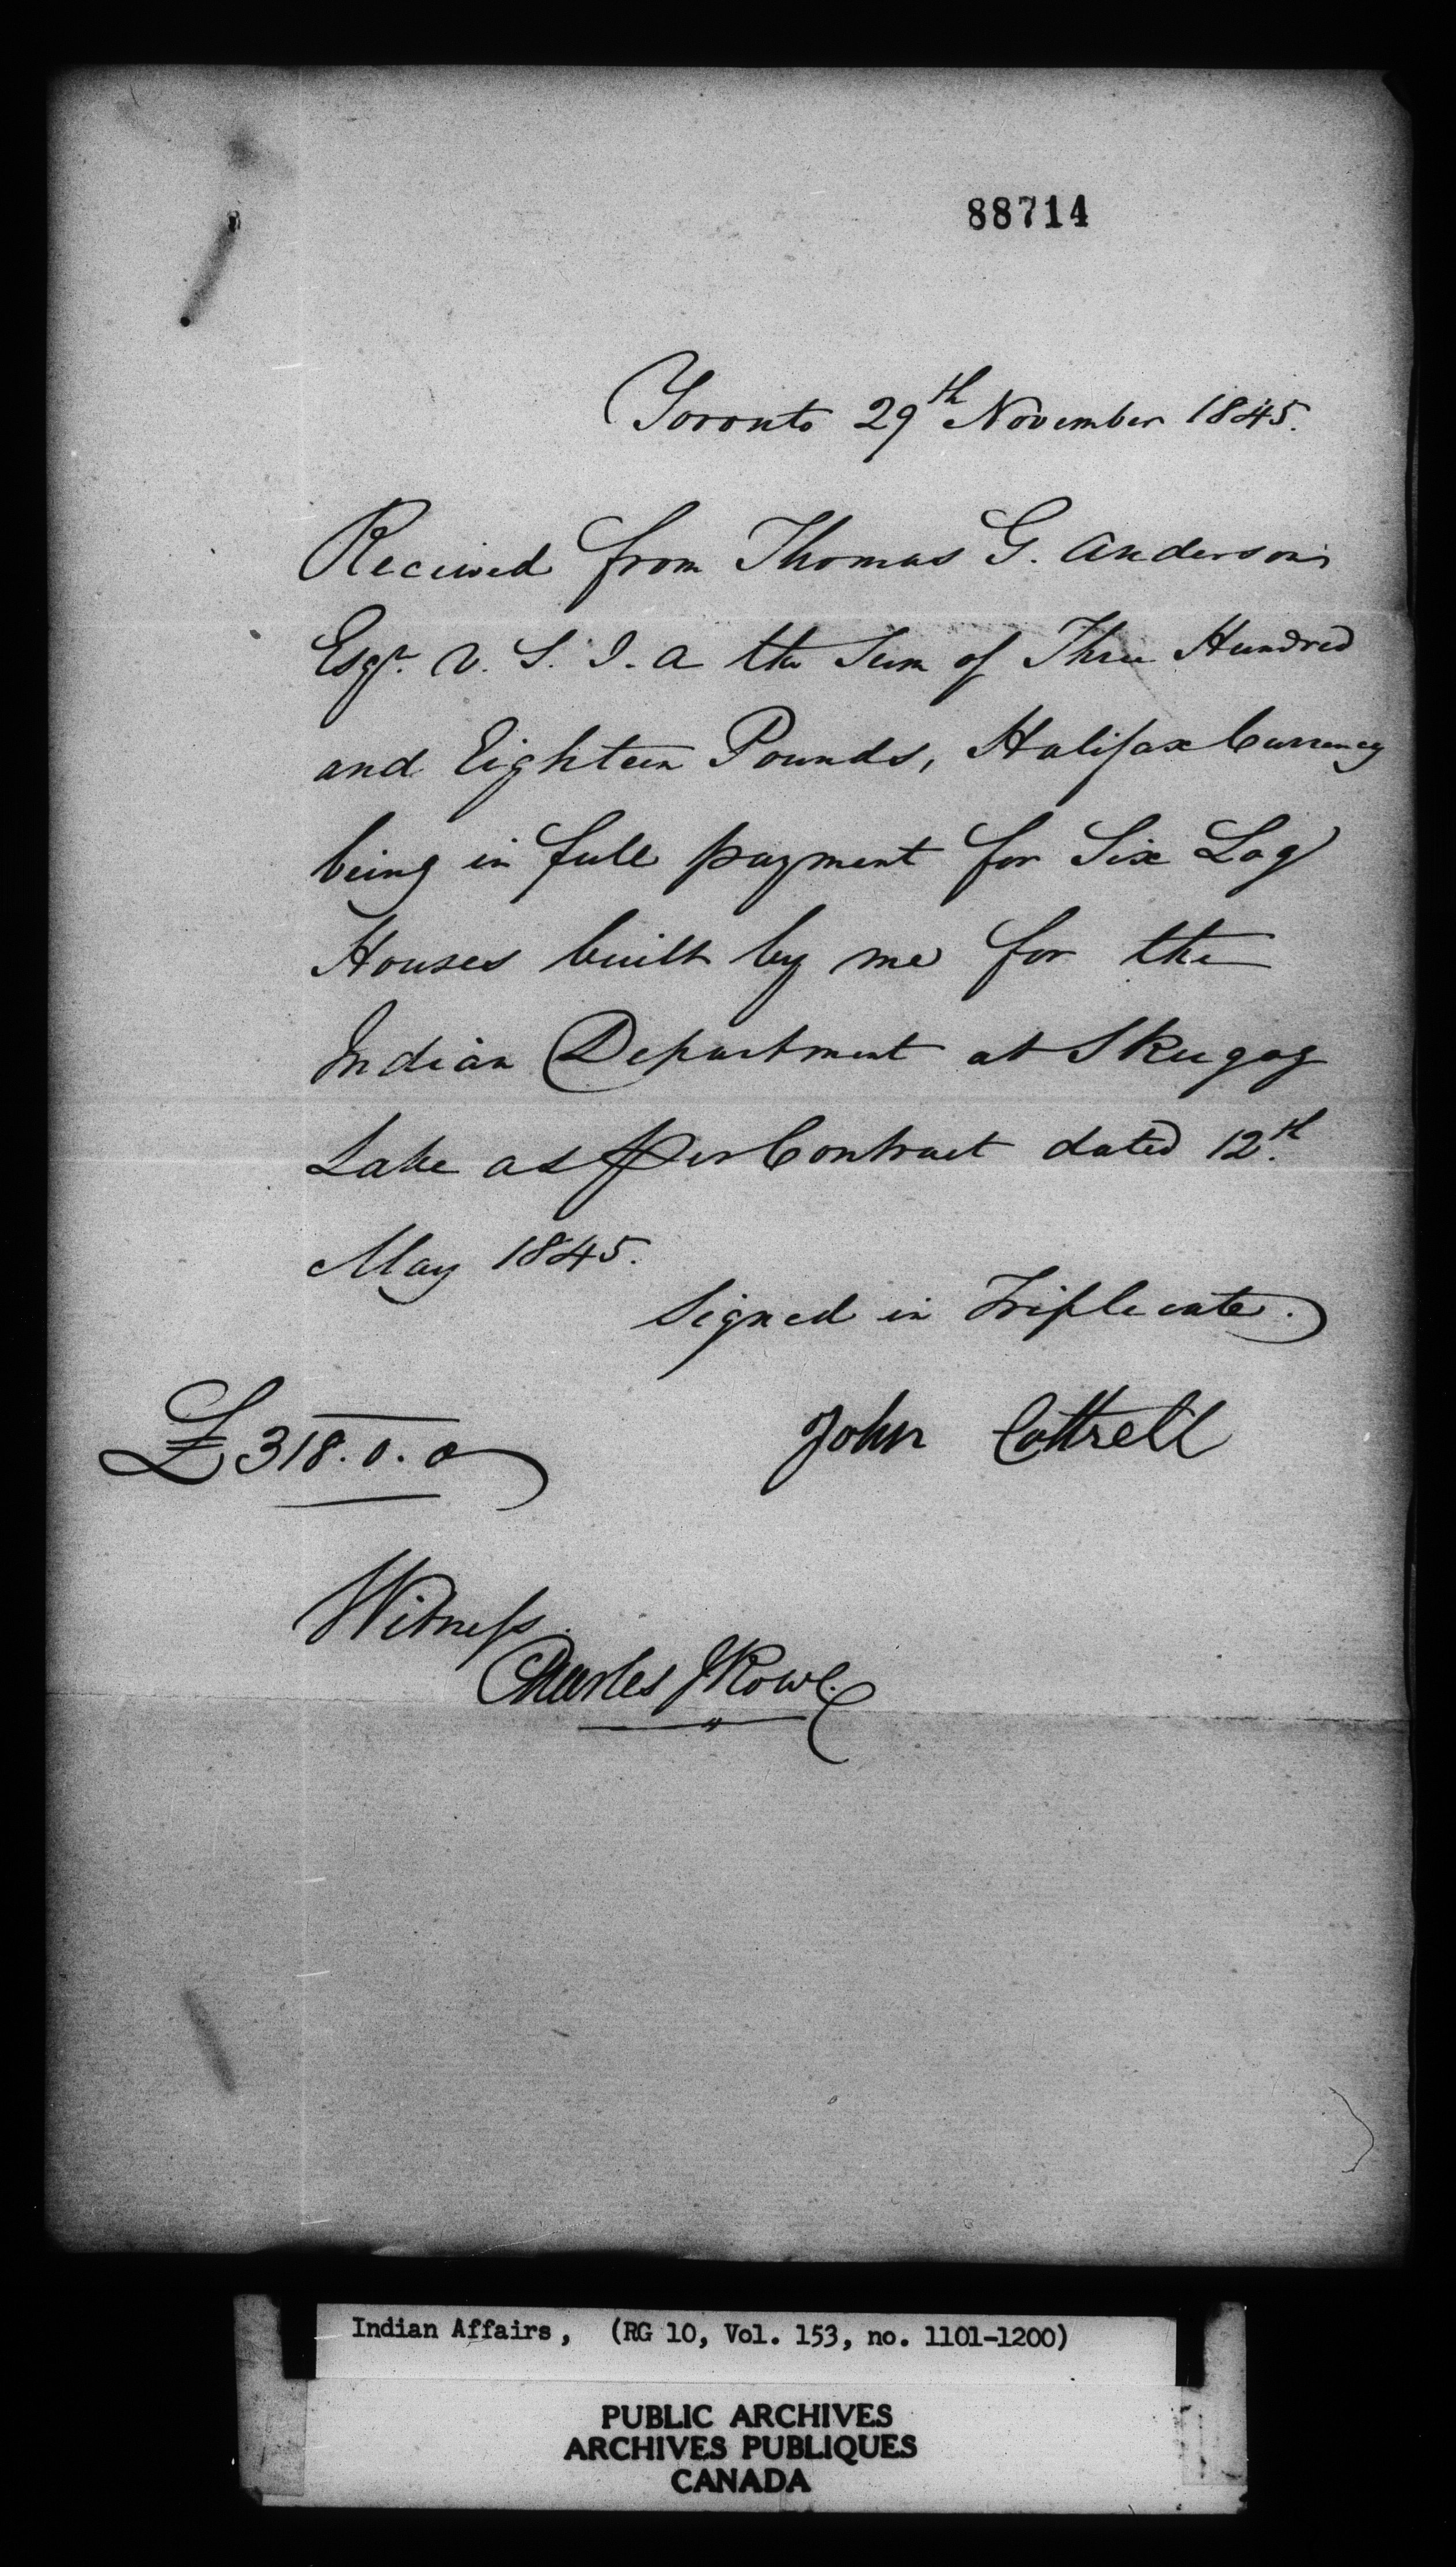 88714
Toronto 29th November 1845.
Received from Thomas G. Anderson
Esqr. V. S. I. A the Sum of Three Hundred
and Eighteen Pounds, Halifax Currency
being in full payment for Six Log
Houses built by me for the
Indian Department at Skugog
Lake as per Contract dated 12th.
May 1845.
Signed in Triplicate.
John Cottrell
£318.0.0
Witness.
Charles J Rowe.
Indian Affairs, (RG 10, Vol. 153, no. 1101-1200)
PUBLIC ARCHIVES
ARCHIVES PUBLIQUES
CANADA